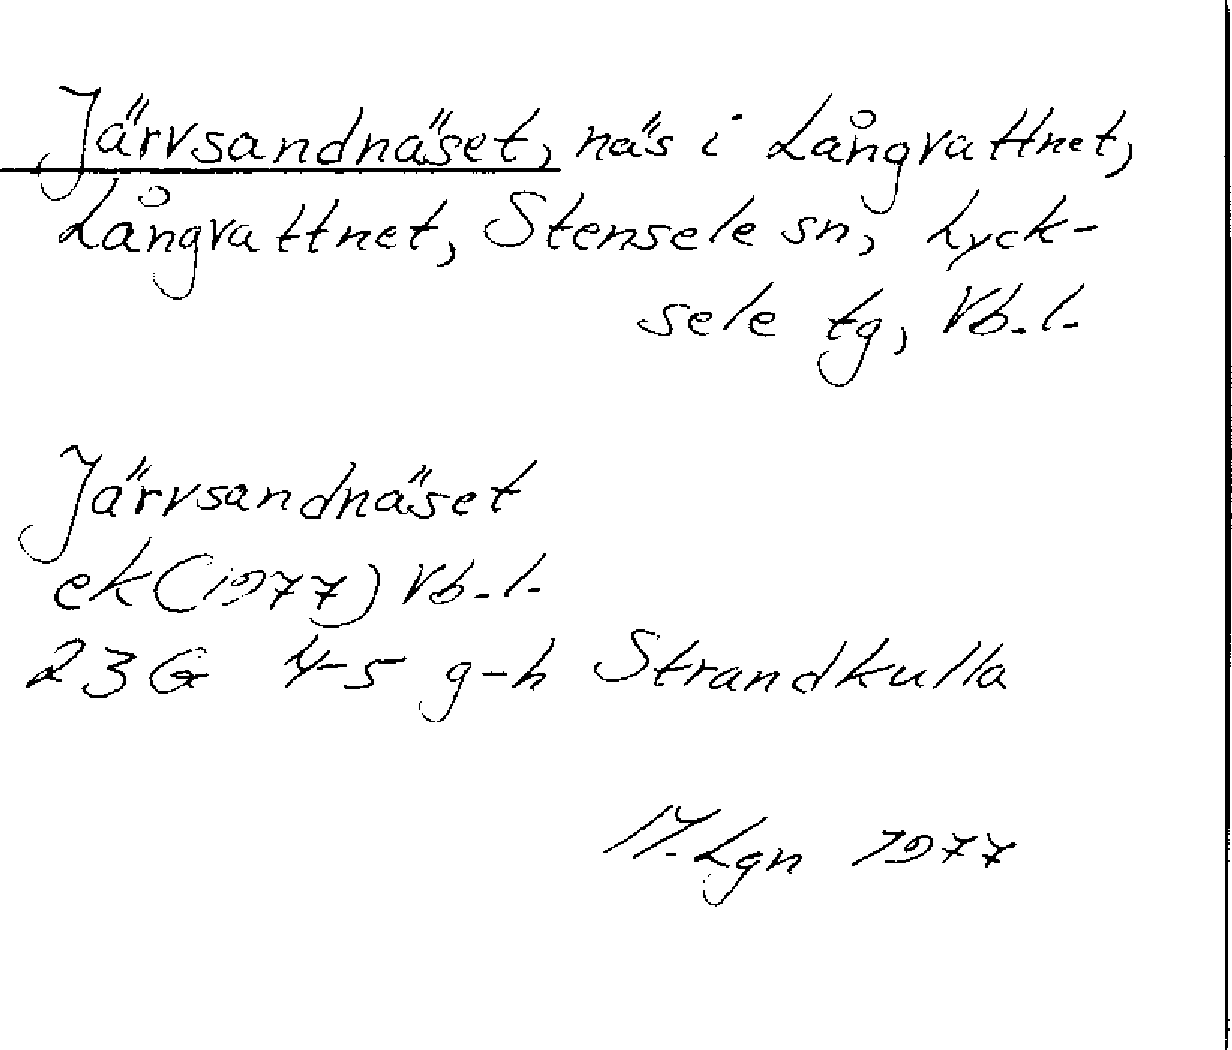 Järvsandnäset, näs i Långvattnet,
Långvattnet, Stensele sn, Lyck-
sele tg, Vb. l.
Järvsandnäset
ek (1977) Vb. l.
23 G 4-5 g-h Strandkulla
M. Lgn 1977